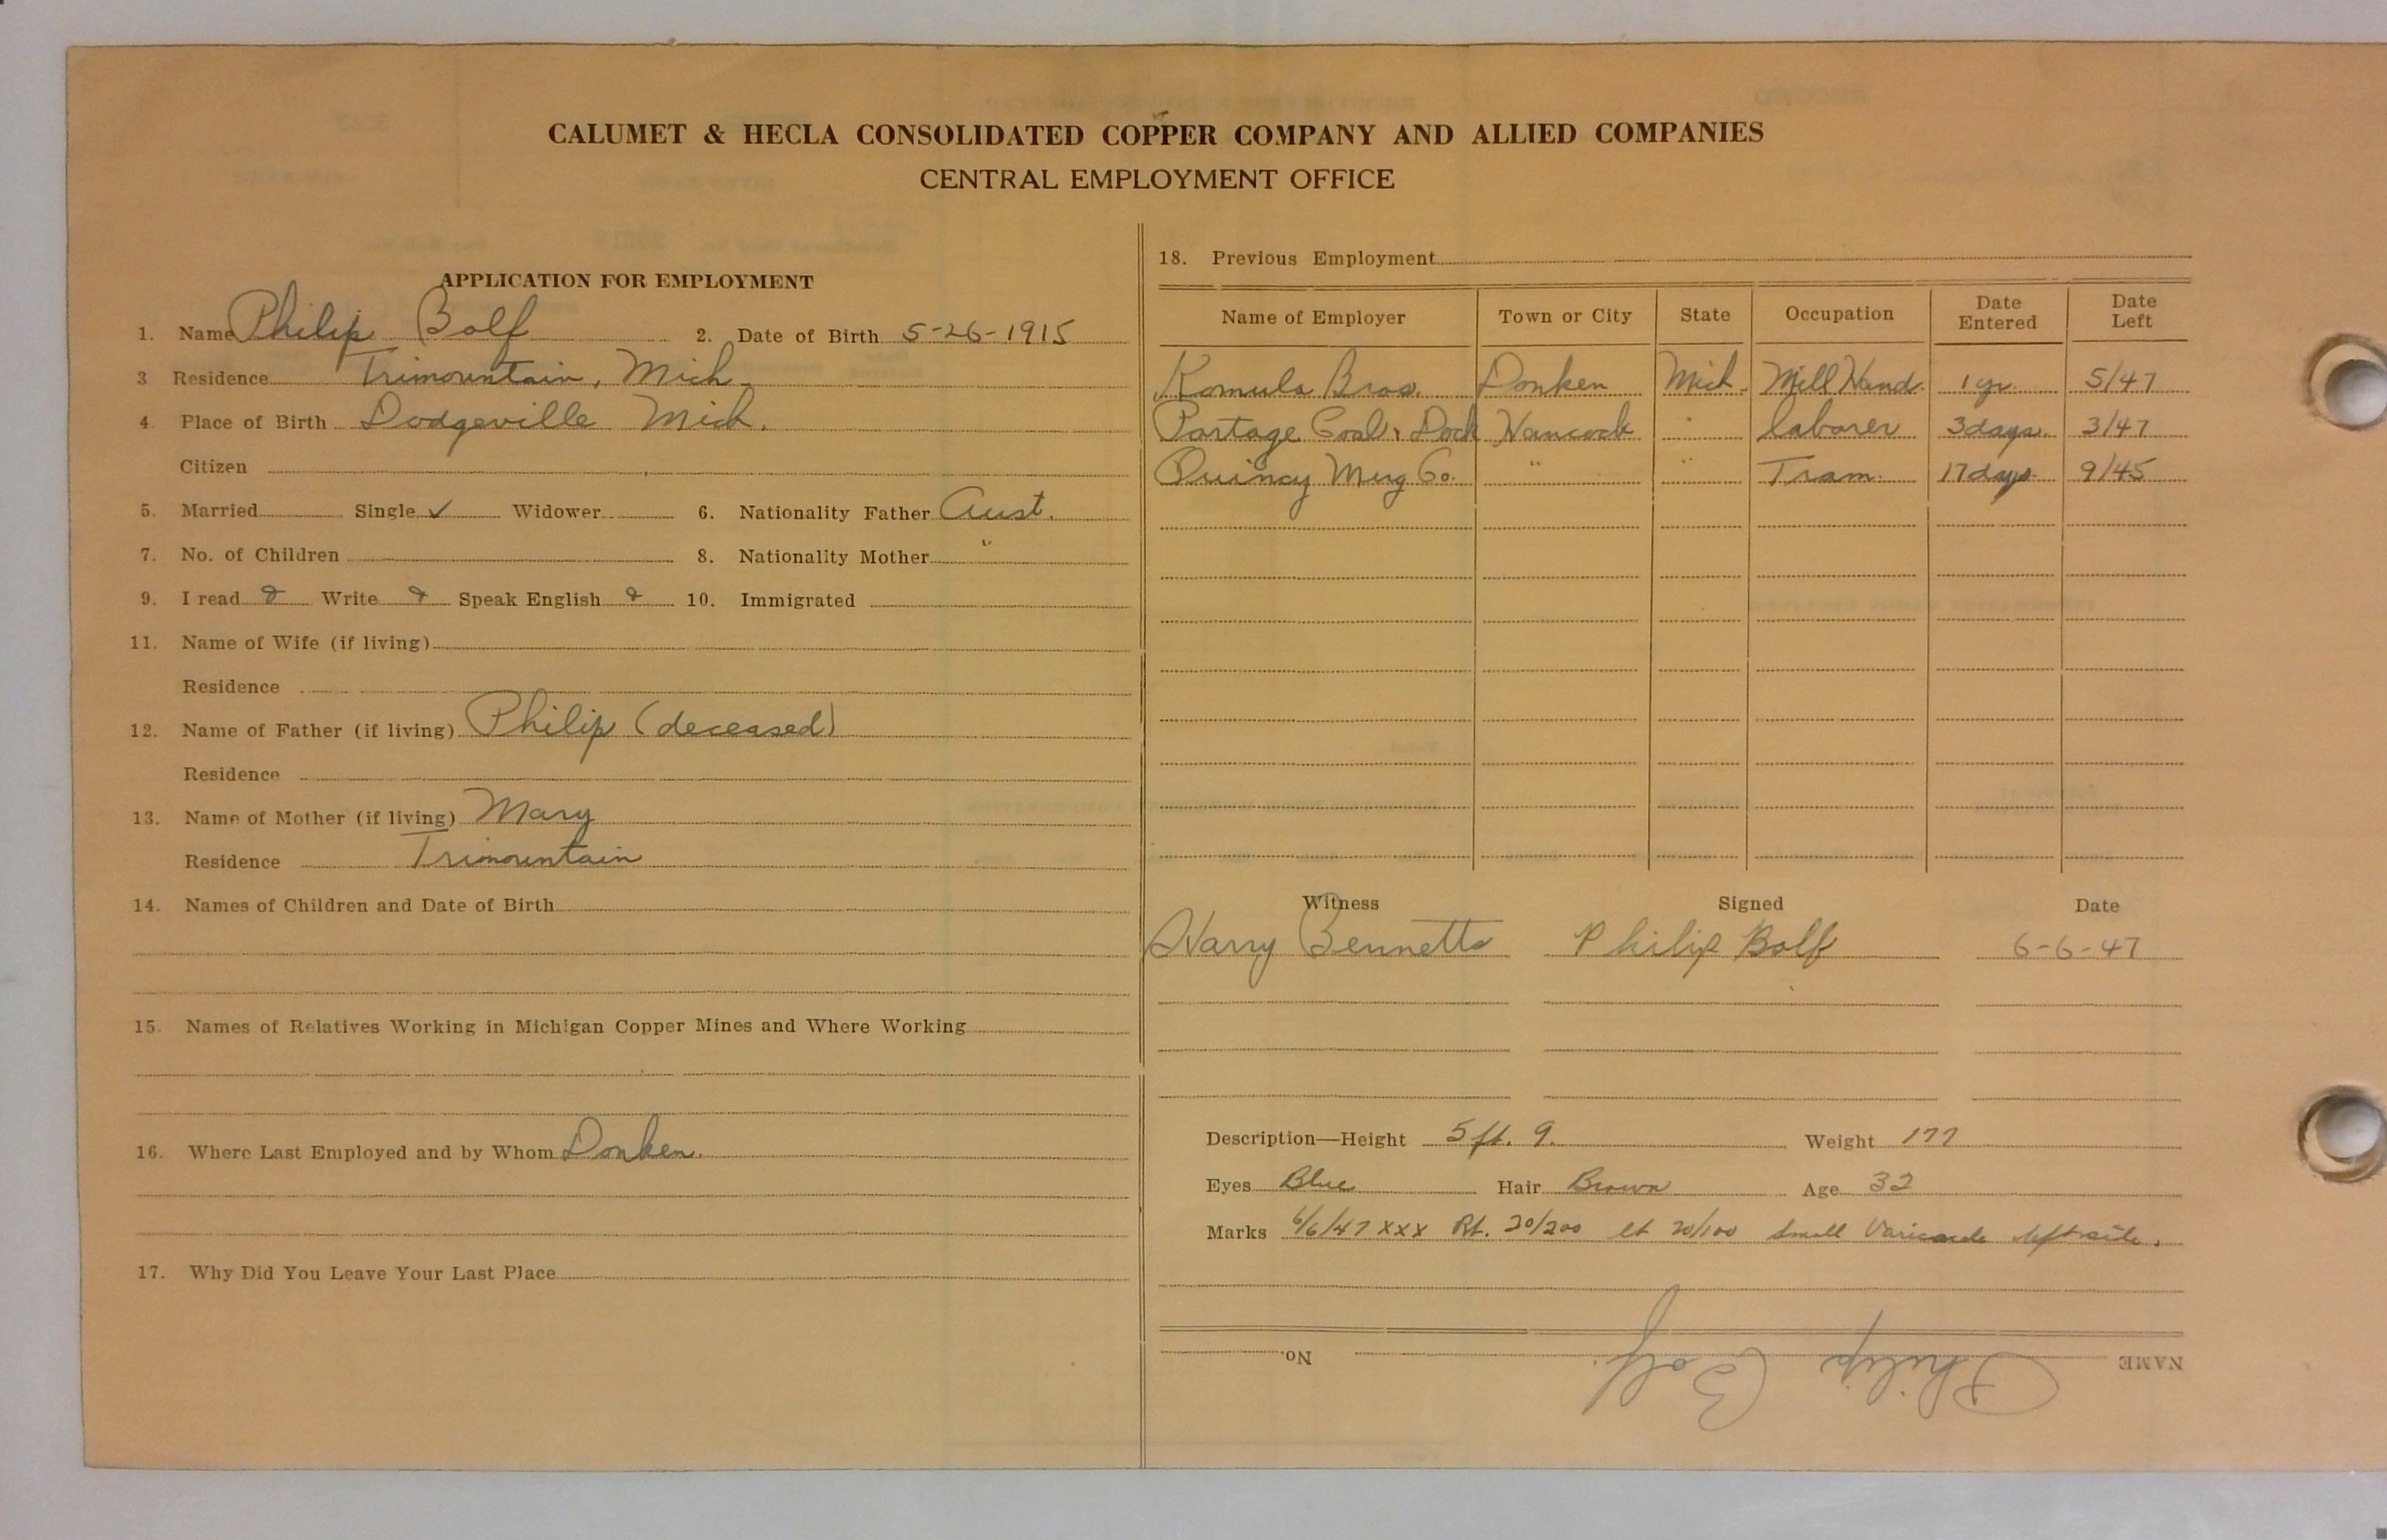 CALUMET & HECLA CONSOLIDATED COPPER COMPANY AND ALLIED COMPANIES
CENTRAL EMPLOYMENT OFFICE
APPLICATION FOR EMPLOYMENT
1. Name Philip Bolf 2. Date of Birth 5-26-1915
3 Residence Trimountain, Mich.
4 Place of Birth Dodgeville Mich.
Citizen
5. Married Single ✓ Widower 6. Nationality Father Aust.
7. No. of Children 8. Nationality Mother "
9. I read Write Speak English 10. Immigrated
11. Name of Wife (if living)
Residence
12. Name of Father (if living) Philip (deceased)
Residence
13. Name of Mother (if living) Mary
Residence Trimountain
14. Names of Children and Date of Birth
15. Names of Relatives Working in Michigan Copper Mines and Where Working
16. Where Last Employed and by Whom Donken.
17. Why Did You Leave Your Last Place
18. Previous Employment
Name of Employer Town or City State Occupation Date Entered Date Left
Komula Bros. Donken Mich. Mill Hand. 1 yr. 5/47
Portage Coal & Dock Hancock " laborer 3 days. 3/47
Quincy Mng Co. " " Tram. 17 days. 9/45
Witness Signed Date
Harry Bennetts Philip Bolf 6-6-47
Description—Height 5 ft. 9. Weight 177
Eyes Blue Hair Brown Age 32
Marks 6/6/47 xxx Rt. 20/200 lt 20/100 Small left side.
NAME Philip Bolf. No.